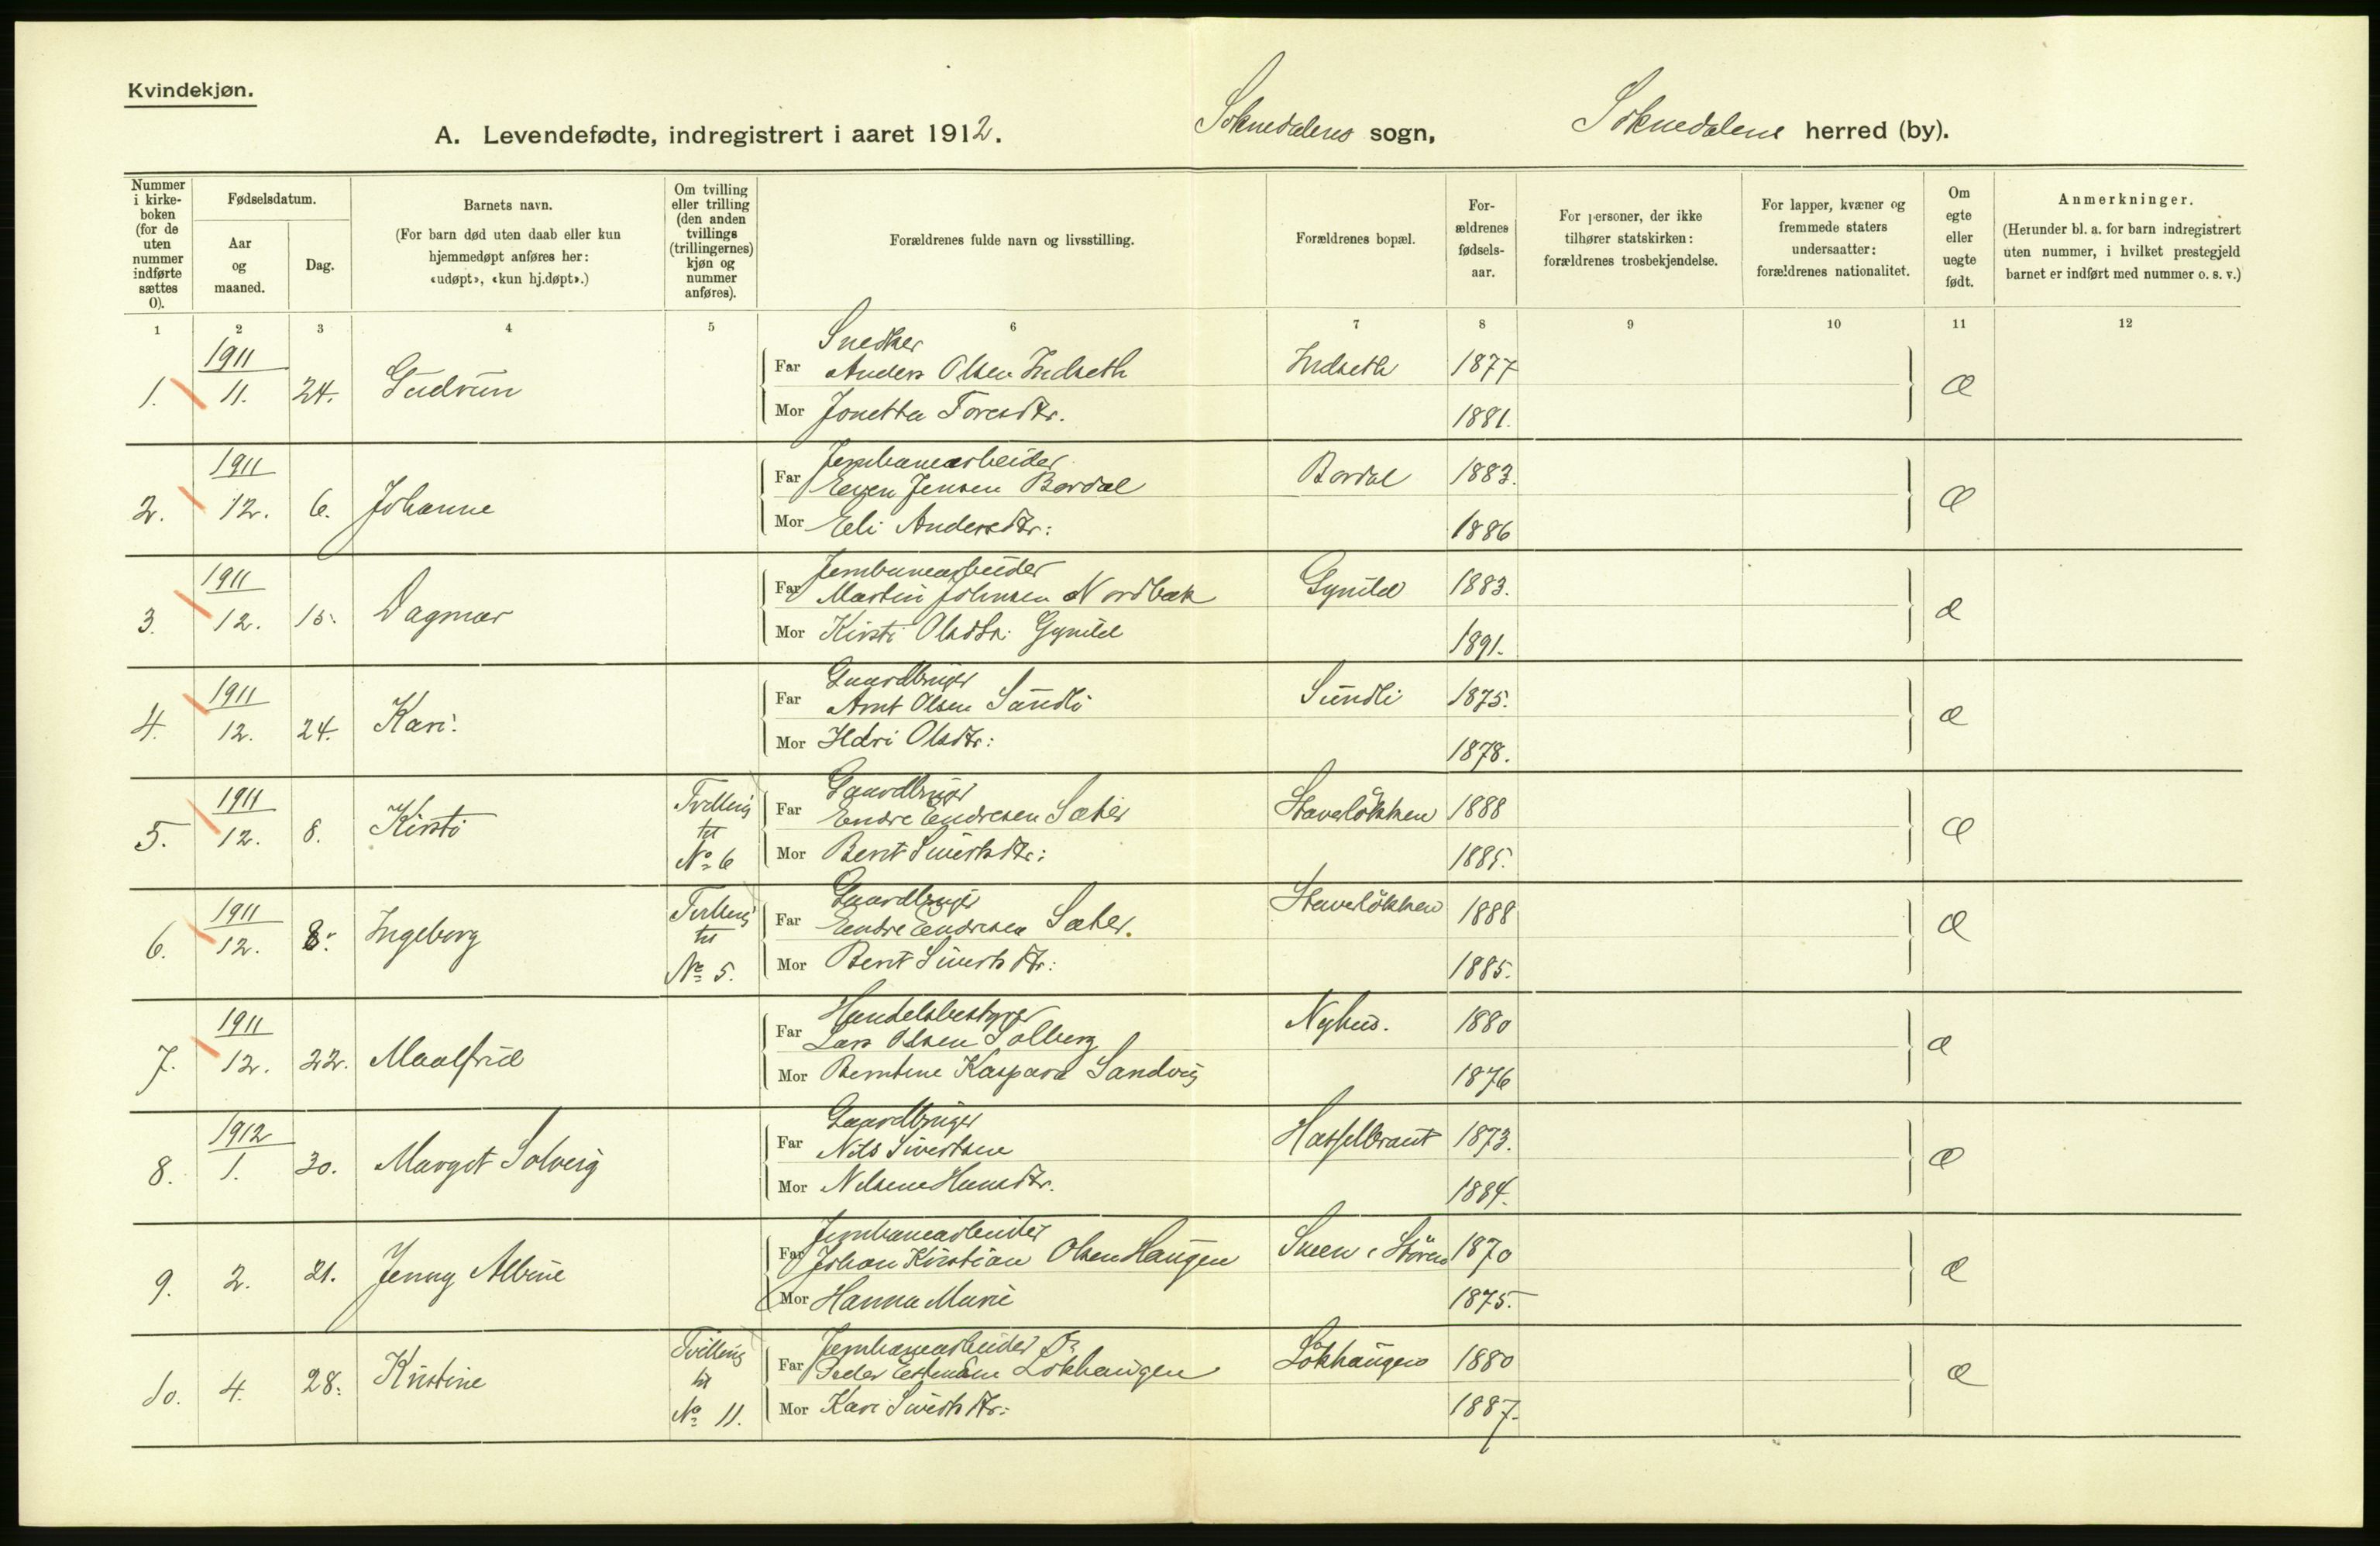 Kvindekjøn.
A. Levendefødte, indregistrert i aaret 1912. Soknedalens sogn, Soknedalens herred (by).
Nummer i kirke-boken (for de uten nummer indførte sættes 0).
Fødselsdatum.
Aar og maaned.
Dag.
Barnets navn.
(For barn død uten daab eller kun hjemmedøpt anføres her: «udøpt», «kun hj.døpt».)
Om tvilling eller trilling (den anden tvillings (trillingernes) kjøn og nummer anføres).
Forældrenes fulde navn og livsstilling.
Forældrenes bopæl.
For-ældrenes fødsels-aar.
For personer, der ikke tilhører statskirken: forældrenes trosbekjendelse.
For lapper, kvæner og fremmede staters undersaatter: forældrenes nationalitet.
Om egte eller uegte født.
Anmerkninger.
(Herunder bl. a. for barn indregistrert uten nummer, i hvilket prestegjeld barnet er indført med nummer o. s. v.)
1 2 3 4 5 6 7 8 9 10 11 12
1911 Snedker
Far Anders Olsen Indseth Indseth 1877
1. 11. 24. Gudrun Æ
Mor Jonetta Toresdtr. 1881.
1911 Jernbanearbeider
Far Even Jensen Bordal Bordal 1883.
2. 12. 6. Johanne Æ
Mor Eli Andersdtr: 1886
1911 Jernbanearbeider
Far Martin Johnsen Nordbæk Gynild 1883.
3. 12. 15. Dagmar Æ
Mor Kirsti Olsdtr. Gynild 1891.
1911 Gaardbruger
Far Arnt Olsen Sundli Sundli 1875.
4. 12. 24. Kari. Æ
Mor Olsdtr: 1878.
1911 Tvilling Gaardbruger
Far Endre Endresen Sæter Staverløkken 1888
5. 12. 8. Kirsti til Æ
No 6 Mor Berit Sivertsdtr: 1885.
1911 Tvilling Gaardbruger
Far Endre Endresen Sæter. Staverløkken 1888
6. 12. 8. Ingeborg til Æ
No 5. Mor Berit Sivertsdtr: 1885.
1911 Handelsbestyrer
Far Lars Olsen Solberg Nyhus. 1880
7. 12. 22. Maalfrid Æ
Mor Berntine Kaspara Sandvig 1876
1912 Gaardbruger
Far Nils Sivertsen Hasselbraut 1873.
8. 1. 30. Margit Solveig Æ
Mor Nelsine Hansdtr. 1884.
Jernbanearbeider
Far Johan Kristian Olsen Haugen Sneen i Støren 1870
9. 2. 21. Jenny Albine Æ
Mor Hanna Marie 1875.
Tvilling Jernbanearbeider
Far Peder Estensen Løkhaugen Løkhaugen 1880
10. 4. 28. Kristine til Æ
No 11. Mor Kari Sivertsdtr: 1887.